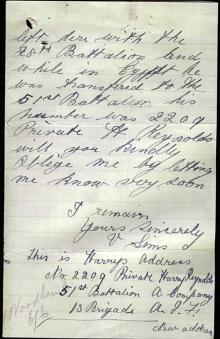 left here with the
28th Battalion and
while in Egypt he
was transfered to the
51st Battalion his
number was 2209
Private H Reynolds
will you kindly
Oblige me by letting
me know very soon
I remain
Yours Sincerely
V Sims
this is Harrys address
No 2209 Private Harry Reynolds
51st Battalion A Company
13 Brigade A.I.F.
New address